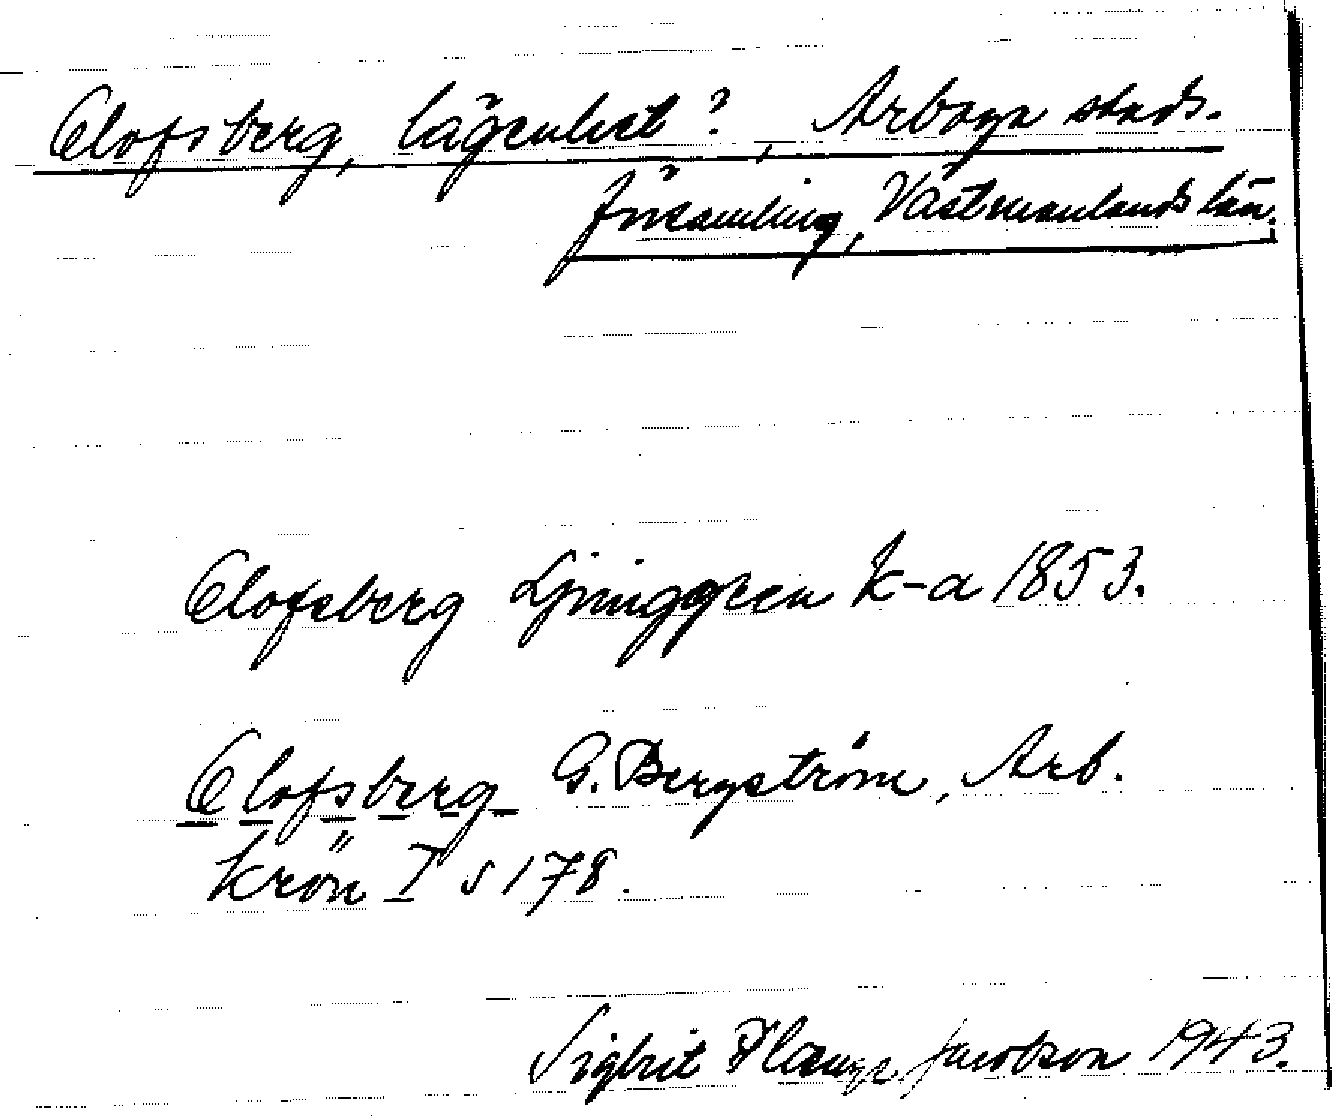 Elofsberg, lägenhet?, Arboga stads-
församling, Västmanlands län.
Elofsberg Ljunggren k-a 1853.
Elofsberg G. Bergström, Arb.
krön I s 178.
Sigbrit Plænge Jacobson 1943.